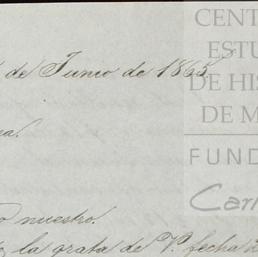 de Junio de 1865.
nuestro.
la grata de V. fecha
CENT
ESTU
DE HIS
DE M
FUND
Car